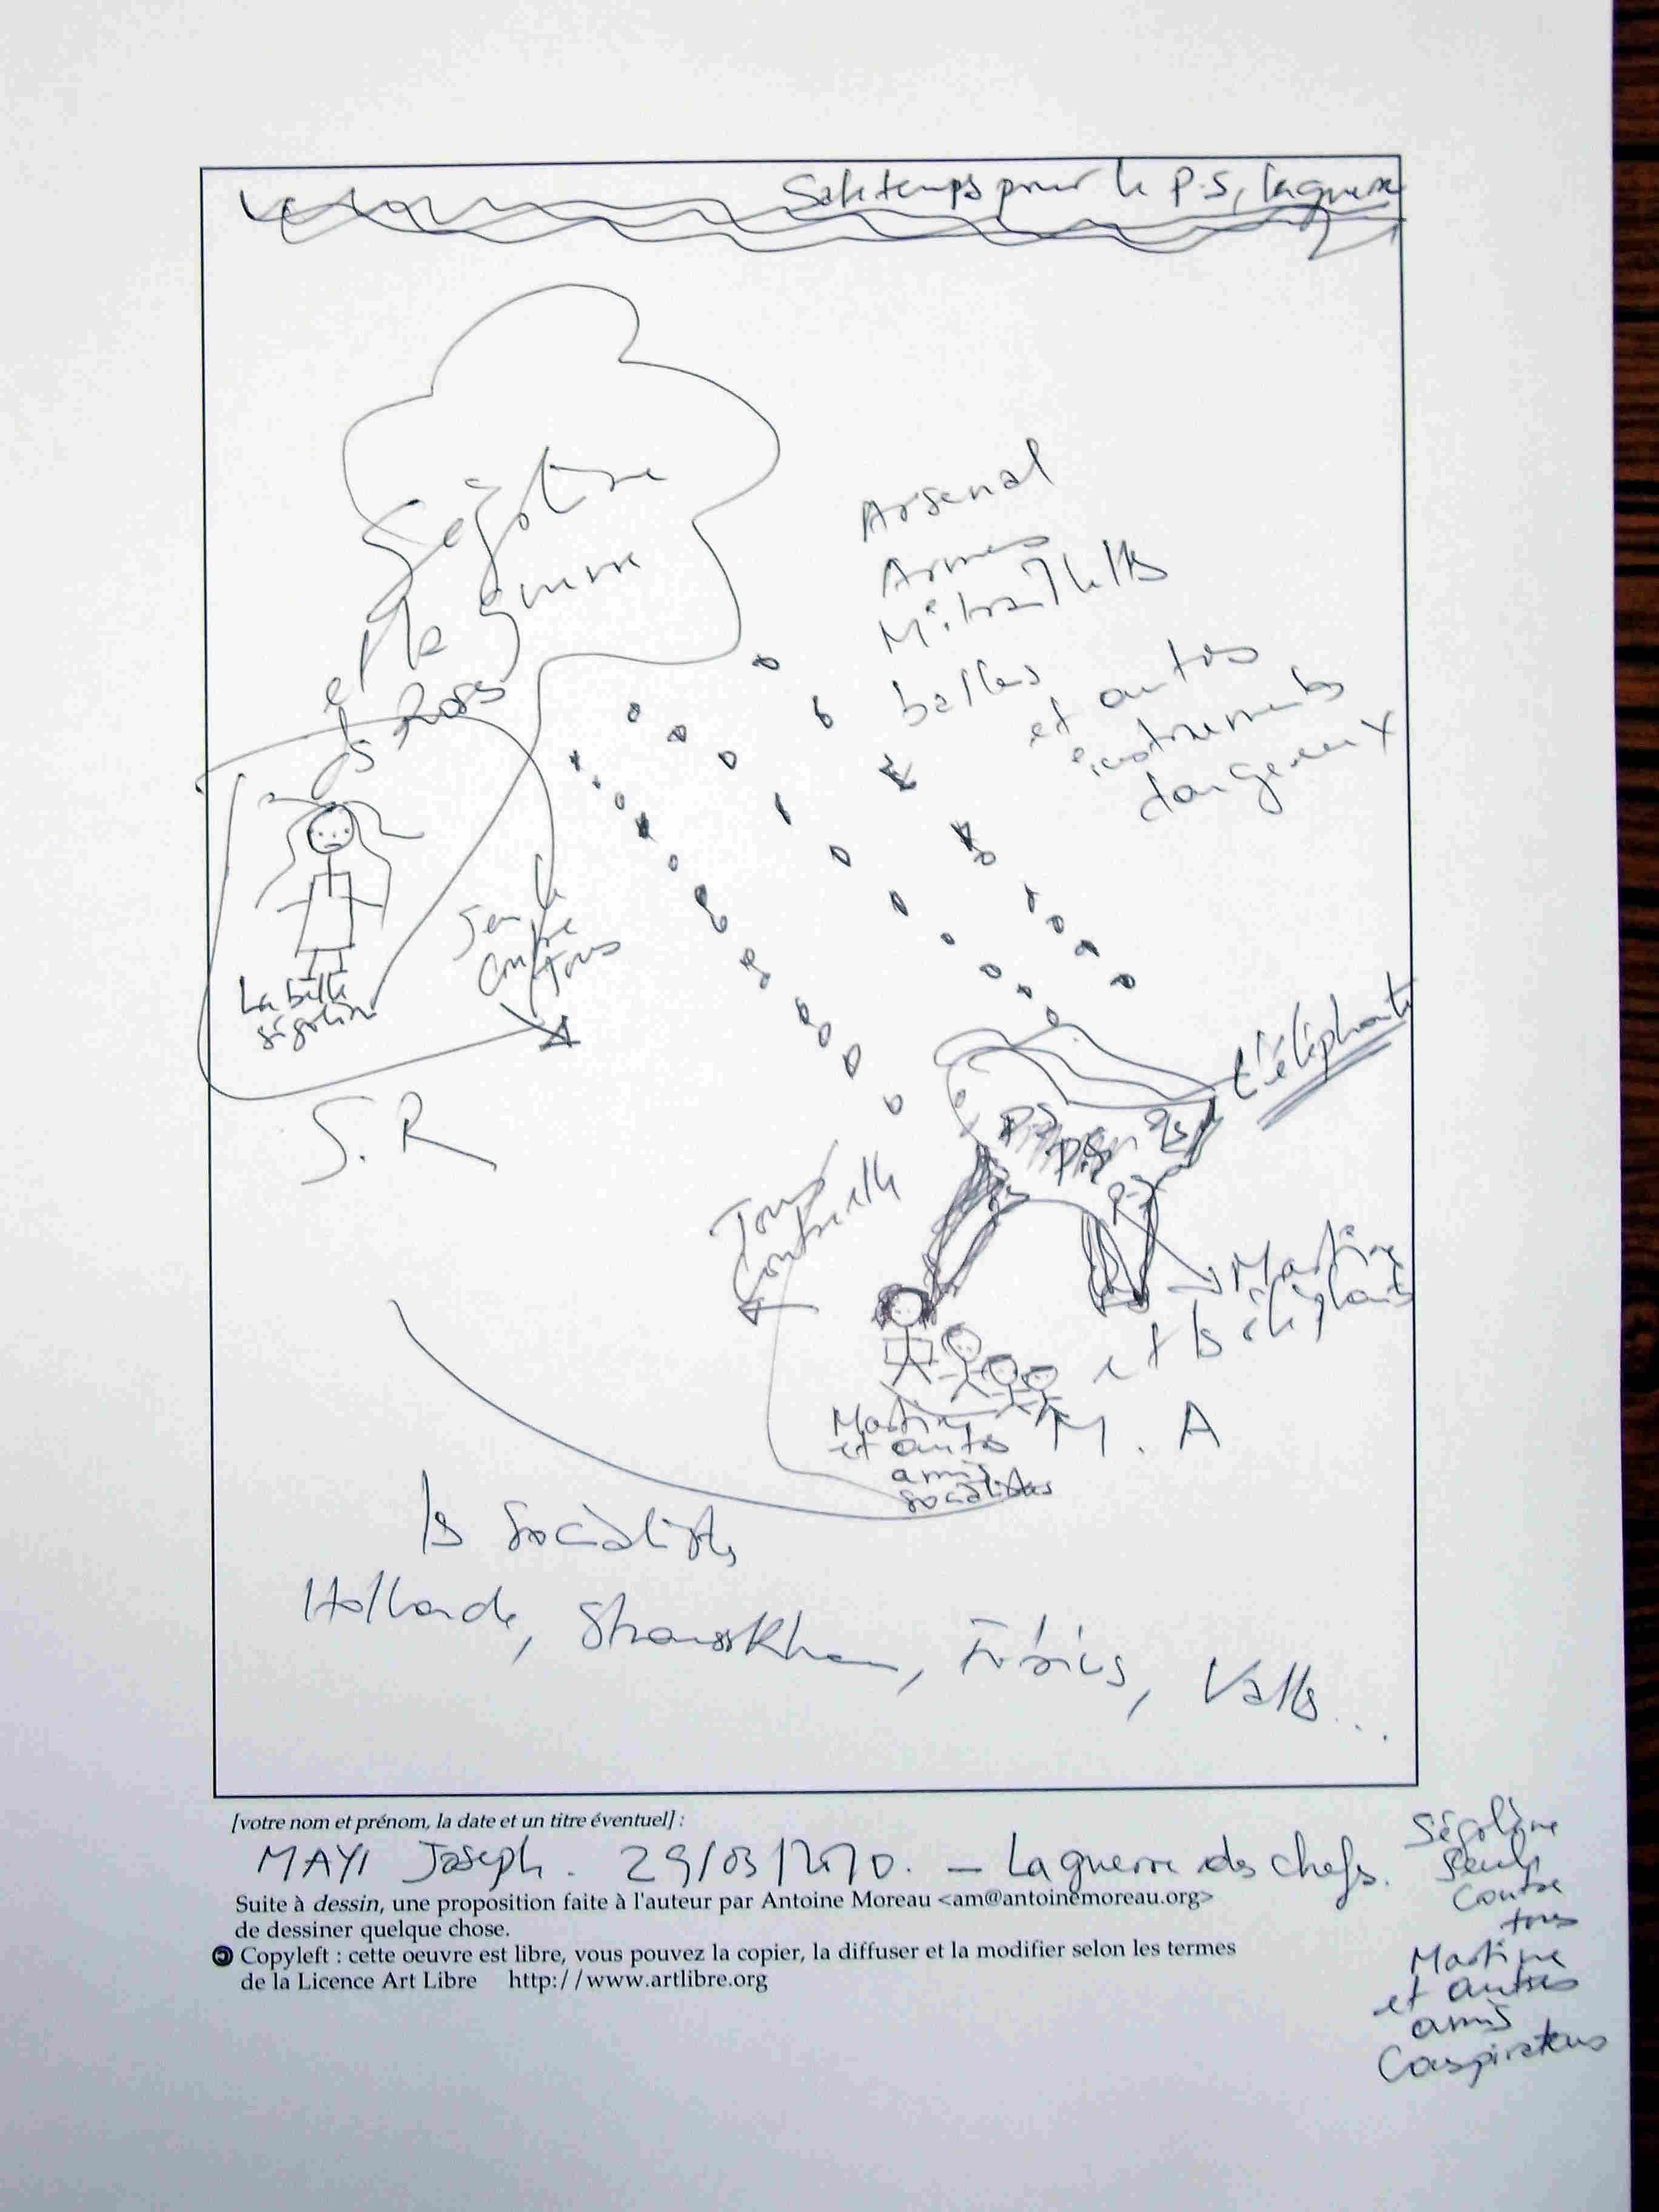 Sale temps pour le P.S, la guerre
Ségolène
guerre
et
Roses
Arsenal
Armes
Mitraillettes
balles
et autres
instruments
dangereux
La belle
ségolène
contre
tous
S.R
l'éléphant
P.S
P.S
Tous
contre elle
Martine
et les éléphants
M.A
Martine
et autres
amis
socialistes
les socialistes
Hollande, Strausskhan, Fabius, Valls...
[votre nom et prénom, la date et un titre éventuel] :
MAYI Joseph. 29/03/2010. — La guerre des chefs.
Suite à dessin, une proposition faite à l'auteur par Antoine Moreau <am@antoinemoreau.org>
de dessiner quelque chose.
Copyleft : cette oeuvre est libre, vous pouvez la copier, la diffuser et la modifier selon les termes
de la Licence Art Libre http://www.artlibre.org
Ségolène
seule
contre
tous
Martine
et autres
amis
Conspirateurs